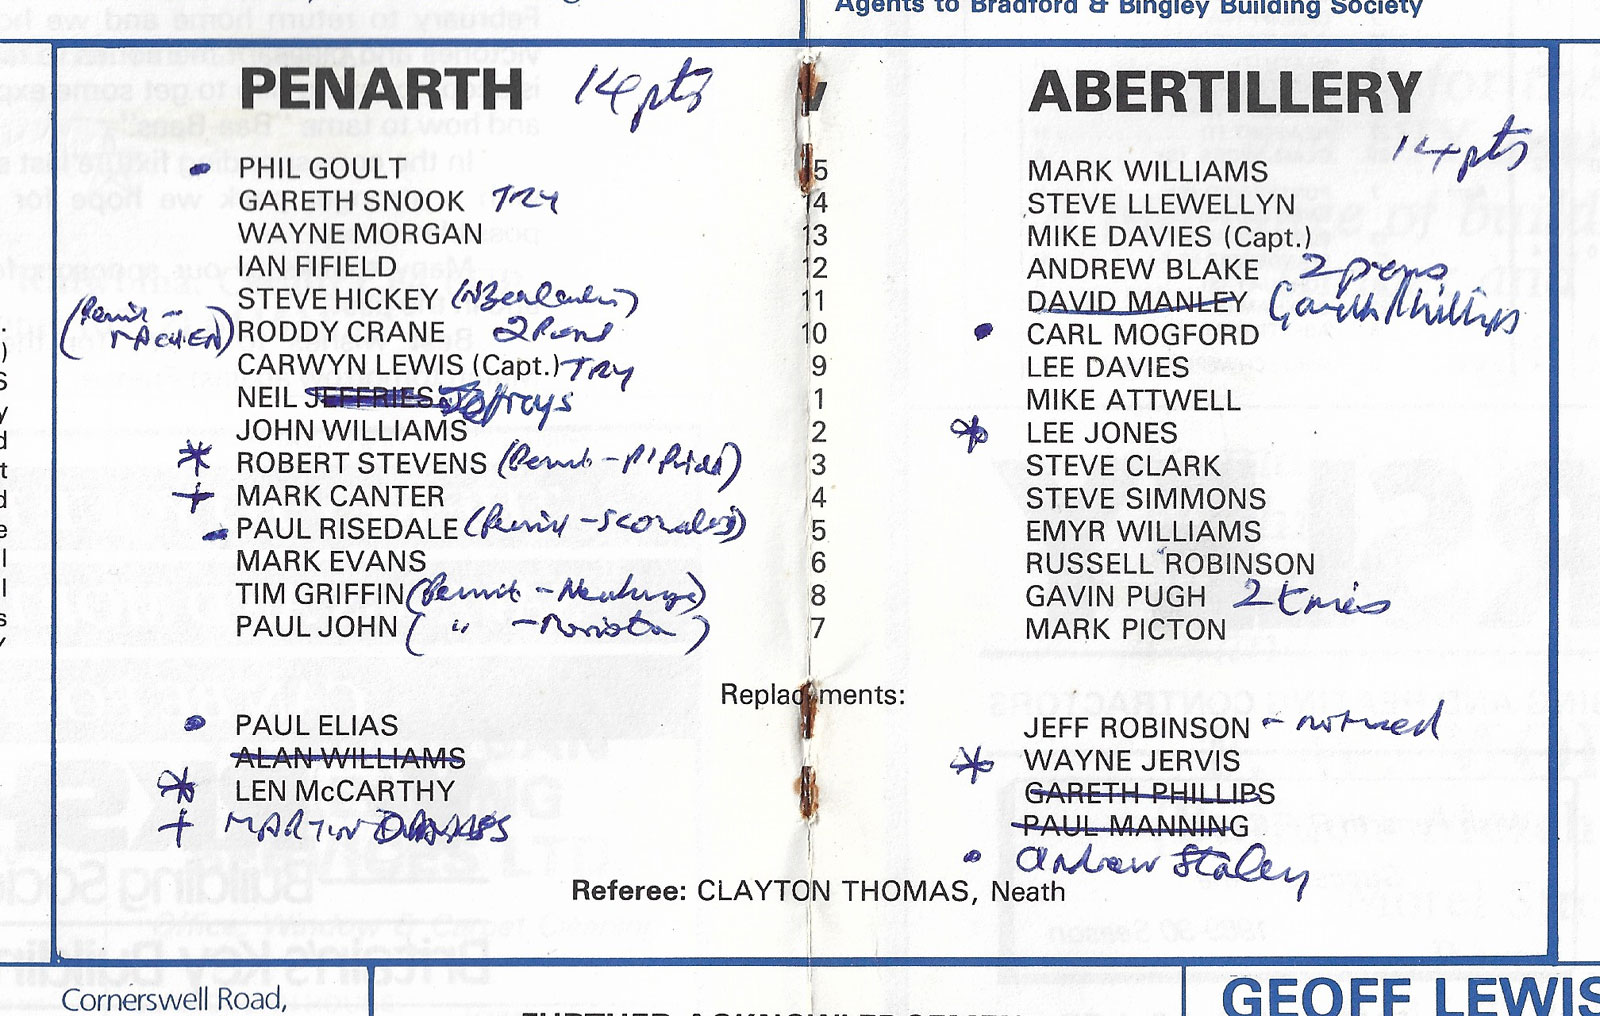 Agents to Bradford & Bingley Building Society
PENARTH 14pts v ABERTILLERY 14pts
PHIL GOULT 15 MARK WILLIAMS
GARETH SNOOK TRY 14 STEVE LLEWELLYN
WAYNE MORGAN 13 MIKE DAVIES (Capt.)
IAN FIFIELD 12 ANDREW BLAKE 2 pens
STEVE HICKEY (NZealander) 11 DAVID MANLEY Gareth Phillips
(Permit - MACHEN) RODDY CRANE 2 Pens 10 CARL MOGFORD
CARWYN LEWIS (Capt.) TRY 9 LEE DAVIES
NEIL JEFFRIES Jeffreys 1 MIKE ATTWELL
JOHN WILLIAMS 2 * LEE JONES
* ROBERT STEVENS (Permit - P'Pridd) 3 STEVE CLARK
+ MARK CANTER 4 STEVE SIMMONS
PAUL RISEDALE (Permit - ) 5 EMYR WILLIAMS
MARK EVANS 6 RUSSELL ROBINSON
TIM GRIFFIN (Permit - ) 8 GAVIN PUGH 2 tries
PAUL JOHN ( " - Morriston ) 7 MARK PICTON
Replacements:
PAUL ELIAS JEFF ROBINSON - not used
ALAN WILLIAMS * WAYNE JERVIS
* LEN McCARTHY GARETH PHILLIPS
+ MARTIN PAUL MANNING
Andrew Staley
Referee: CLAYTON THOMAS, Neath
Cornerswell Road,
GEOFF LEWIS
FURTHER ACKNOWLEDGEMEN